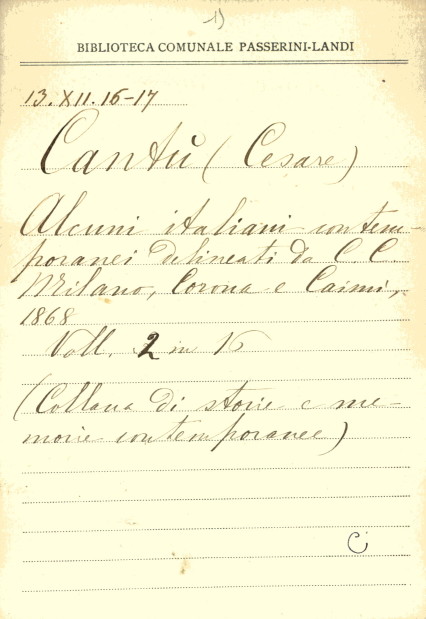 1)
BIBLIOTECA COMUNALE PASSERINI-LANDI
13.XII.16-17
Cantù (Cesare)
Alcuni italiani contem-
poranei delineati da C. C.
Milano, Corona e Caimi,
1868
Voll. 2 in 16
(Collana di storie e me-
morie contemporanee)